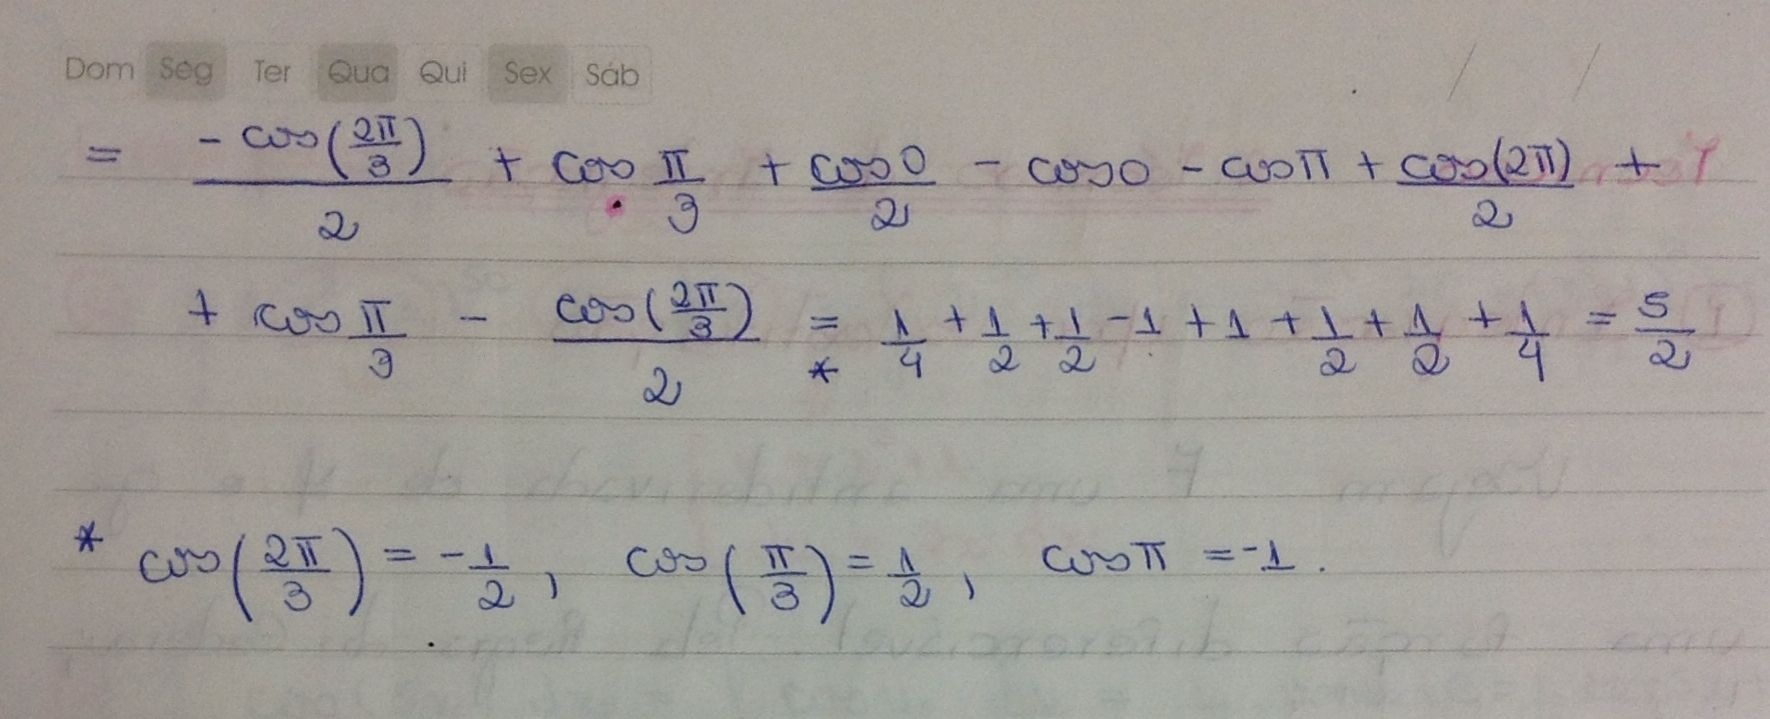 Dom Seg Ter Qua Qui Sex Sáb / /
= -cos(2π/3)/2 + cos π/3 + cos0/2 - cos0 - cosπ + cos(2π)/2 +
+ cos π/3 - cos(2π/3)/2 =* 1/4 + 1/2 + 1/2 - 1 + 1 + 1/2 + 1/2 + 1/4 = 5/2
* cos(2π/3) = -1/2, cos(π/3) = 1/2, cosπ = -1.